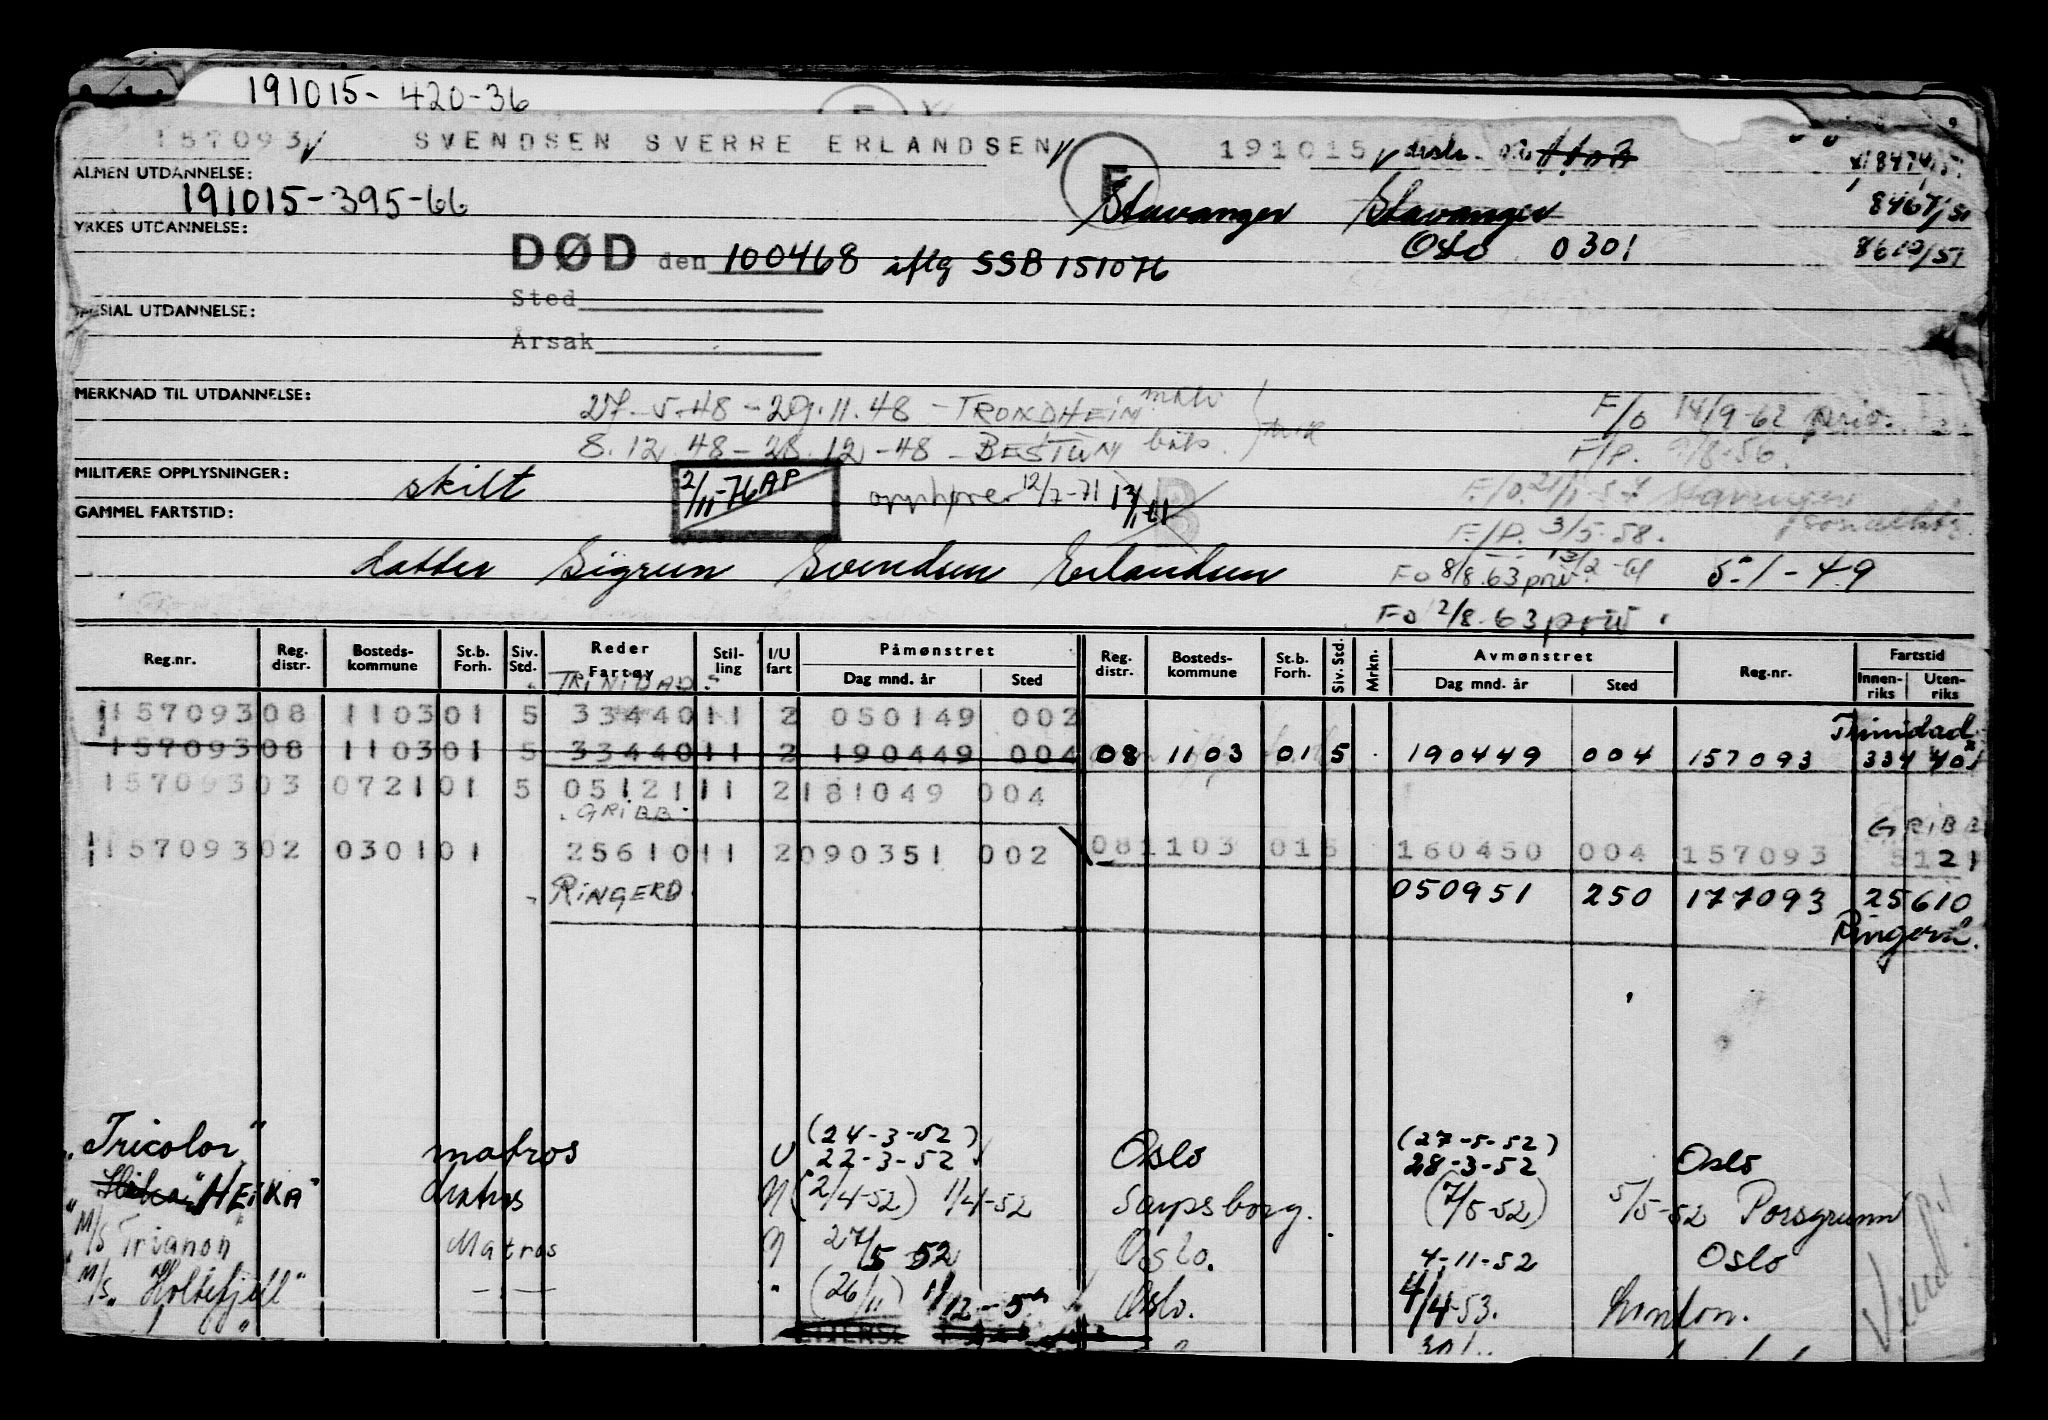 191015- 420-36
157093 SVENDSEN SVERRE ERLANDSEN 191015
ALMEN UTDANNELSE:
191015-395-66 Stavanger Stavanger 8467/51
YRKES UTDANNELSE:
DØD den 100468 iflg SSB 151076 Oslo 0301 8612/51
Sted
SPESIAL UTDANNELSE:
Årsak
MERKNAD TIL UTDANNELSE:
27-5-48-29.11.48-TRONDHEIM F/o 14/9-62 priv.
8.12.48-28.12-48-BESTUN F/P. /8-56.
MILITÆRE OPPLYSNINGER:
skilt 2/11-76 AP opphører 12/7-71
GAMMEL FARTSTID:
F/P. 3/5-58.
datter Sigrun Svendsen Erlandsen Fo 8/8.63 priv. 13/2-61 5.1-49
Fo 12/8.63 priv.
Reg.nr. Reg. distr. Bosteds-kommune St.b. Forh. Siv. Std. Reder Fartøy Stil-ling I/U fart Påmønstret Dag mnd. år Sted Reg. distr. Bosteds-kommune St.b. Forh. Siv. Std. Mrkn. Avmønstret Dag mnd. år Sted Reg.nr. Fartstid Innen-riks Uten-riks
TRINIDAD
157093 08 1103 01 5 33440 11 2 050149 002 Trinidad
157093 08 1103 01 5 33440 11 2 190449 004 08 1103 01 5 190449 004 157093 334 40
157093 03 0721 01 5 05121 11 2 181049 004
GRIBB GRIBB
157093 02 0301 01 25610 11 2 090351 002 08 1103 01 5 160450 004 157093 5121
RINGERD 050951 250 177093 25610
Ringerd.
(24-3-52) (27-5-52)
"Tricolor" matros U 22-3-52 Oslo 28-3-52 Oslo
"HEIKA" Matros N (2/4-52) 1/4-52 Sarpsborg. (7/5-52) 5/5-52 Porsgrunn
M/S "Trianon" Matros N 27/5 52 Oslo. 4-11-52 Oslo
M/S "Holtefjell" -"- " (26/11) 1/12-52 Oslo. 4/4-53.